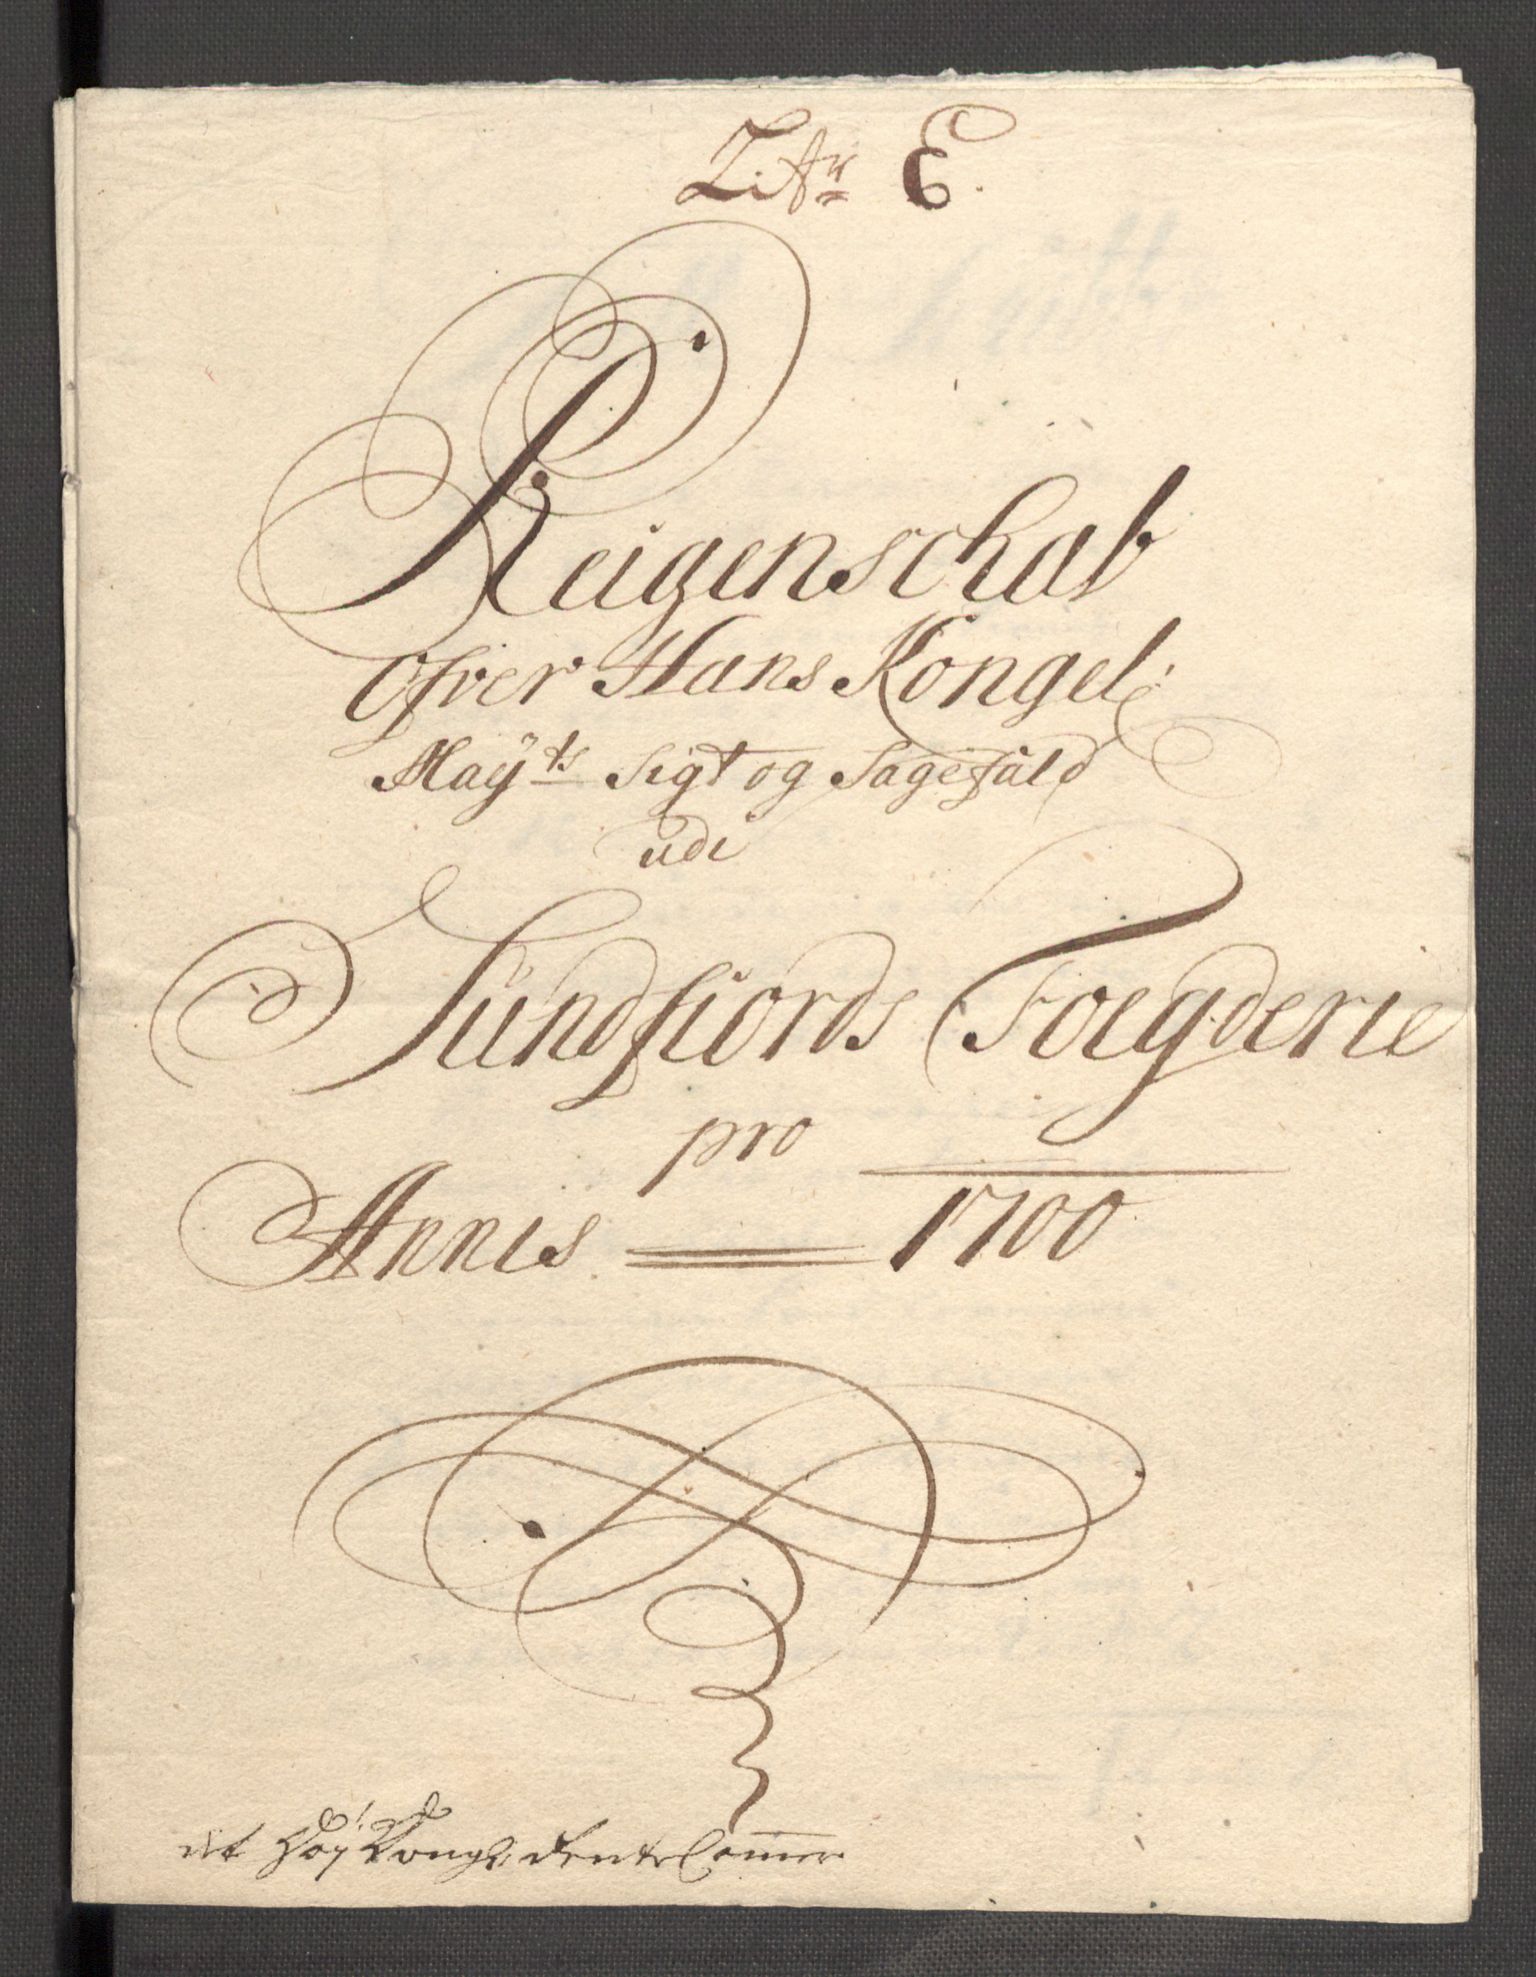 Litr E.
Reigenschab
Ofver Hans Kongel:
Maÿts Sigt og Sagefald
udi
Sündfiords Foegderie
pro
Annis 1700
det Høy Kongl: Rente Camer